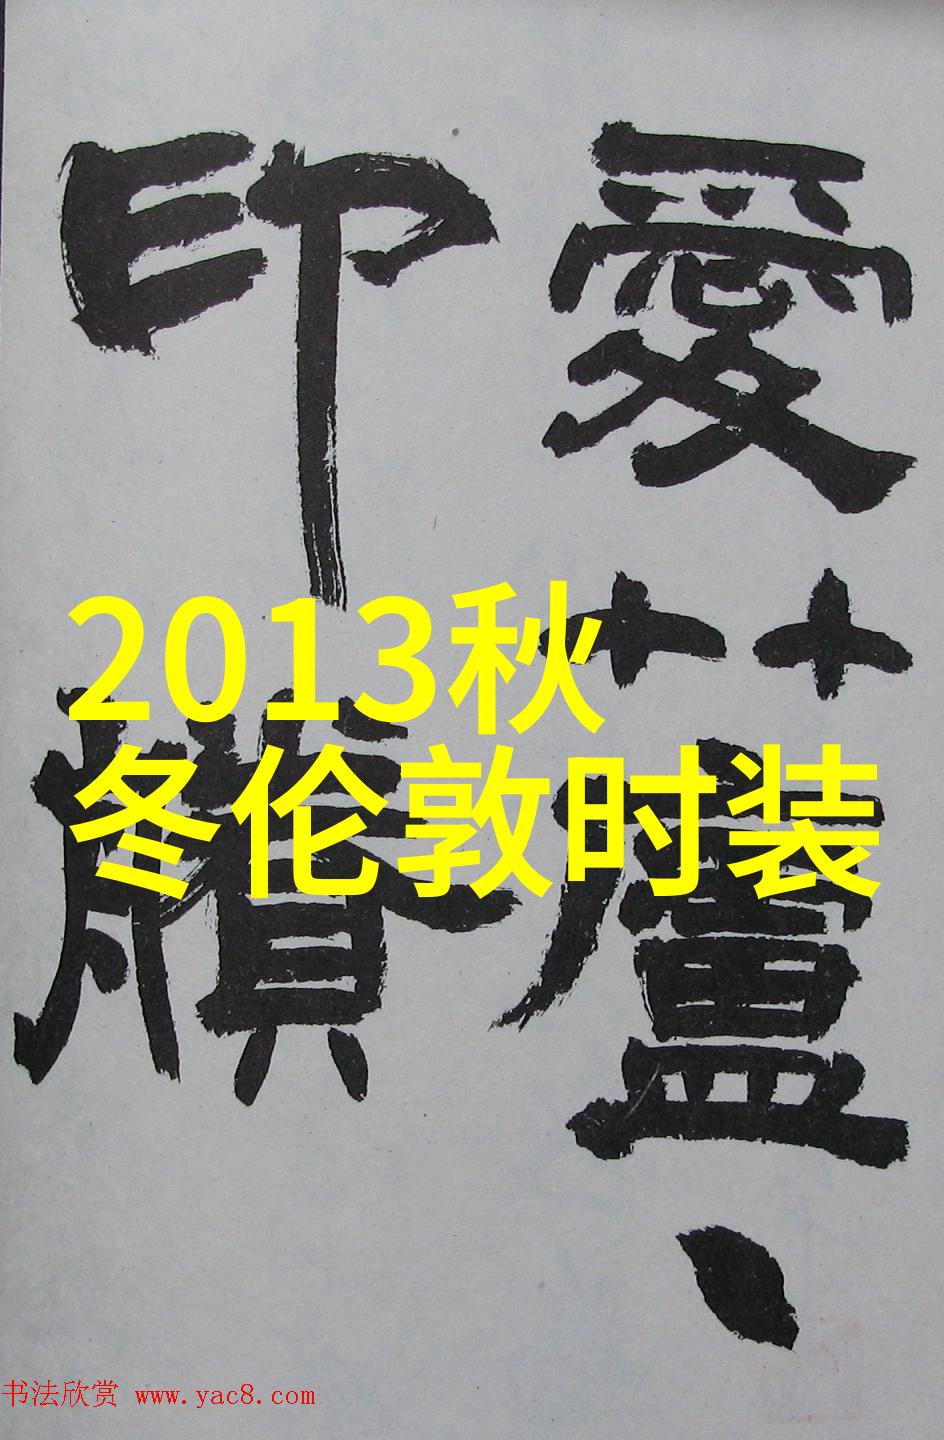 愛蘆、
印
2013秋
冬伦敦时装
书法欣赏 www.yac8.com